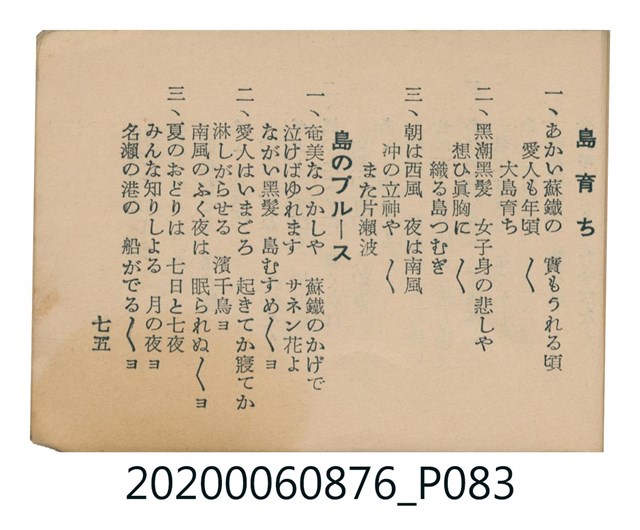 島育ち
一、あかい蘇鐵の　實もうれる頃
愛人も年頃　〱
大島育ち
二、黑潮黑髮　女子身の悲しや
想ひ眞胸に　〱
織る島つむぎ
三、朝は西風　夜は南風
沖の立神や　〱
また片瀨波
島のブルース
一、奄美なつかしや　蘇鐵のかげで
泣けばゆれます　サネン花よ
ながい黑髮　島むすめ〱ョ
二、愛人はいまごろ　起きてか寢てか
淋しがらせる　濱千鳥ョ
南風のふく夜は　眠られぬ〱ョ
三、夏のおどりは　七日と七夜
みんな知りしよる　月の夜ョ
名瀨の港の　船がでる〱ョ
七五
20200060876_P083